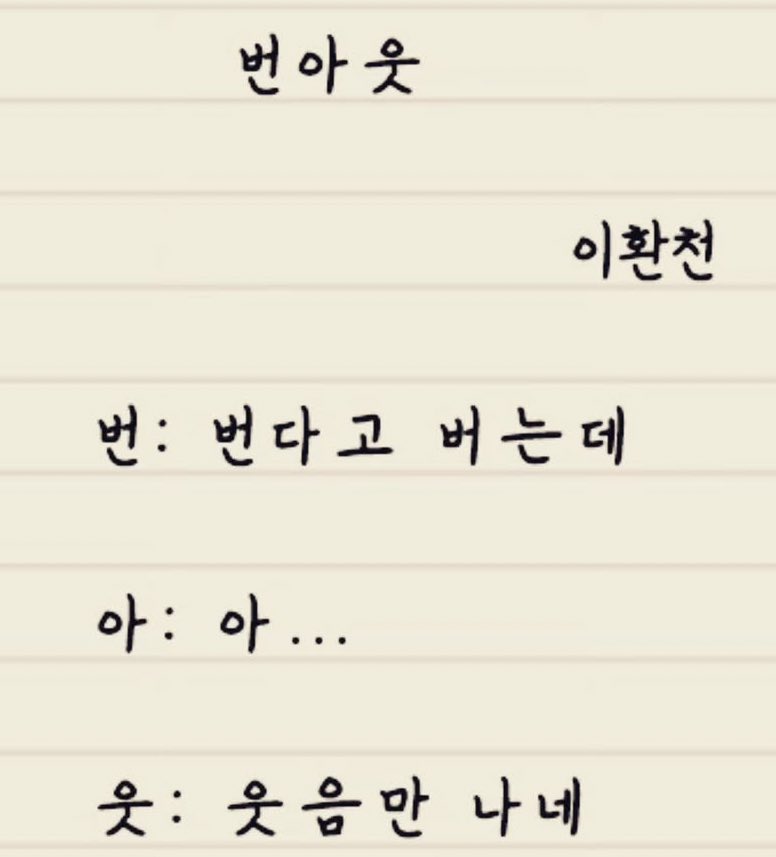 번아웃
이환천
번: 번다고 버는데
아: 아...
웃: 웃음만 나네